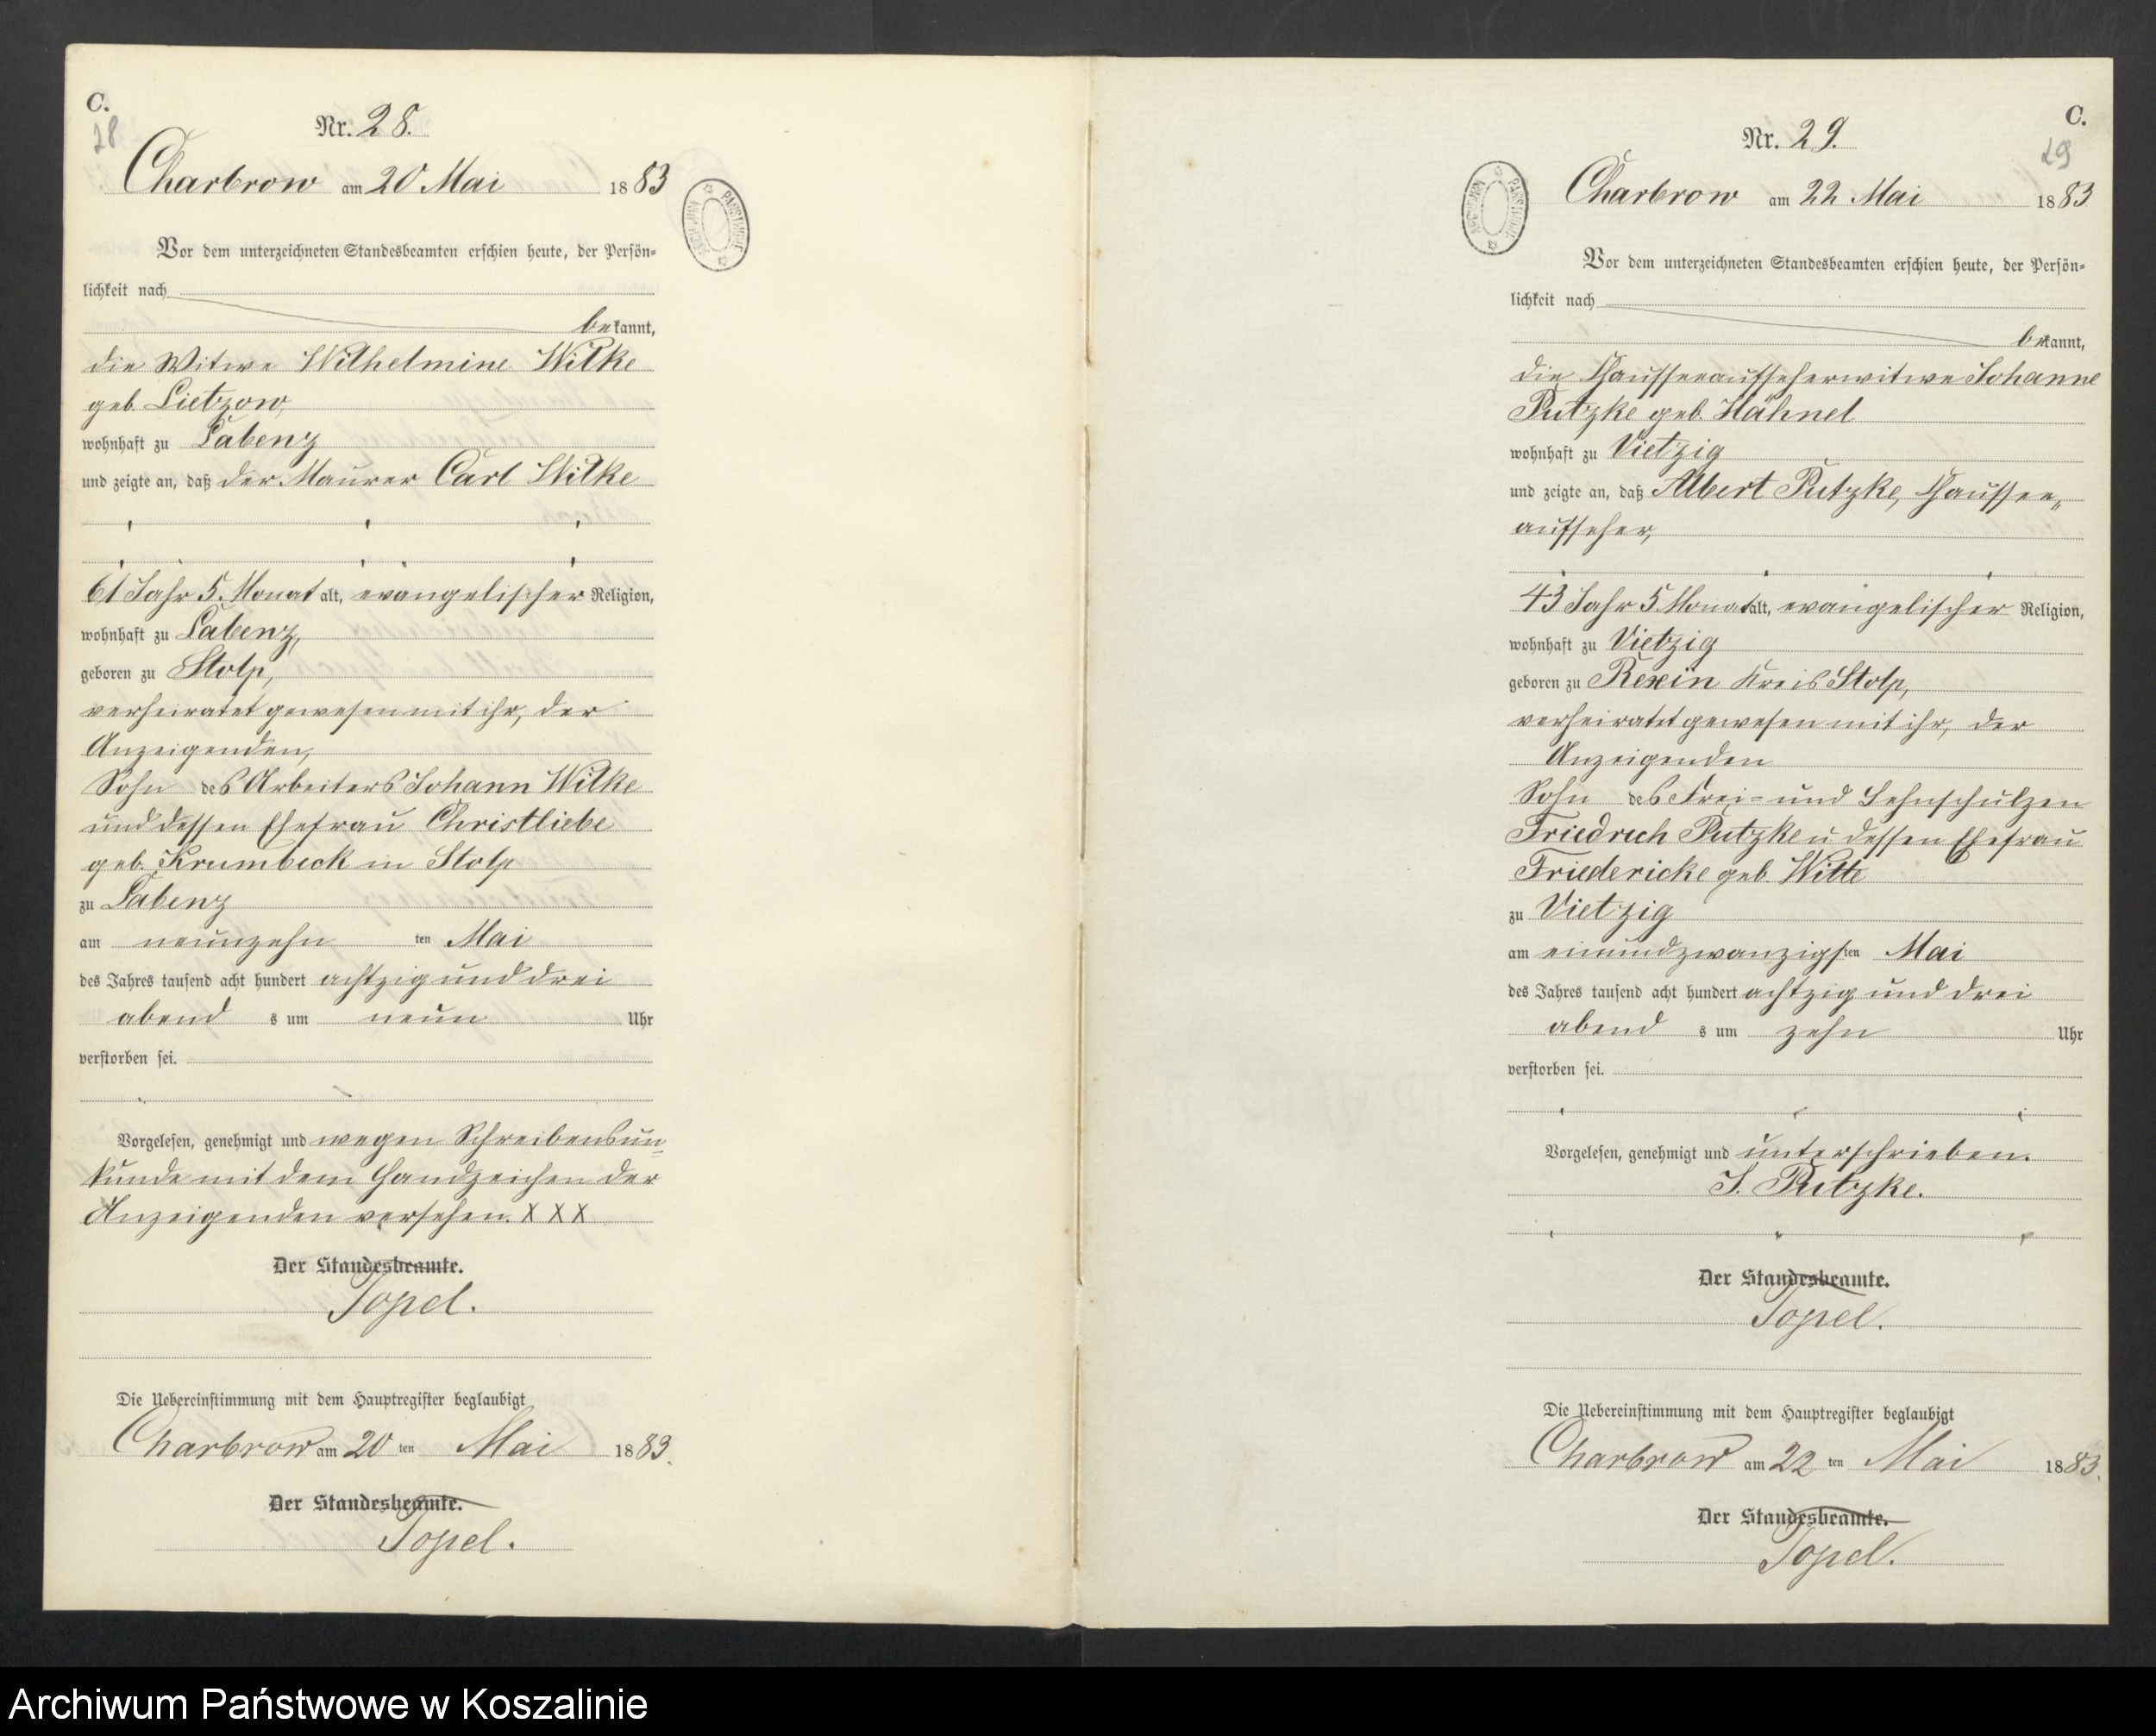 C.
28
Nr. 28.
Charbrow am 20 Mai 1883
Vor dem unterzeichneten Standesbeamten erschien heute, der Persön=
lichkeit nach
bekannt,
die Witwe Wilhelmine Wilke
geb. Lietzow,
wohnhaft zu Labenz
und zeigte an, daß der Maurer Carl Wilke
61 Jahr 5 Monat alt, evangelischer Religion,
wohnhaft zu Labenz,
geboren zu Stolp,
verheiratet gewesen mit ihr, der
Anzeigenden,
Sohn des Arbeiters Johann Wilke
und dessen Ehefrau Christliebe
geb. Krumbeck in Stolp
zu Labenz
am neunzehn ten Mai
des Jahres tausend acht hundert achtzig und drei
abend s um neun Uhr
verstorben sei.
Vorgelesen, genehmigt und wegen Schreibensun=
kunde mit dem Handzeichen der
Anzeigenden versehen. X X X
Der Standesbeamte.
Topel.
Die Uebereinstimmung mit dem Hauptregister beglaubigt
Charbrow am 20 ten Mai 1883.
Der Standesbeamte.
Topel.
C.
29
Nr. 29.
Charbrow am 22 Mai 1883
Vor dem unterzeichneten Standesbeamten erschien heute, der Persön=
lichkeit nach
bekannt,
die Chausseeaufseherwitwe Johanne
Putzke geb. Hähnel
wohnhaft zu Vietzig
und zeigte an, daß Albert Putzke, Chaussee„
aufseher,
43 Jahr 5 Monat alt, evangelischer Religion,
wohnhaft zu Vietzig
geboren zu Rexin Kreis Stolp,
verheiratet gewesen mit ihr, der
Anzeigenden
Sohn des Frei= und Lehnschulzen
Friedrich Putzke u dessen Ehefrau
Friedericke geb. Witte
zu Vietzig
am einundzwanzigsten Mai
des Jahres tausend acht hundert achtzig und drei
abend s um zehn Uhr
verstorben sei.
Vorgelesen, genehmigt und unterschrieben.
J. Putzke.
Der Standesbeamte.
Topel.
Die Uebereinstimmung mit dem Hauptregister beglaubigt
Charbrow am 22 ten Mai 1883.
Der Standesbeamte.
Topel.
Archiwum Państwowe w Koszalinie